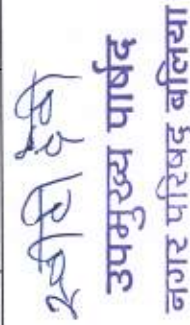 देवी
उपमुख्य पार्षद
नगर परिषद बलिया